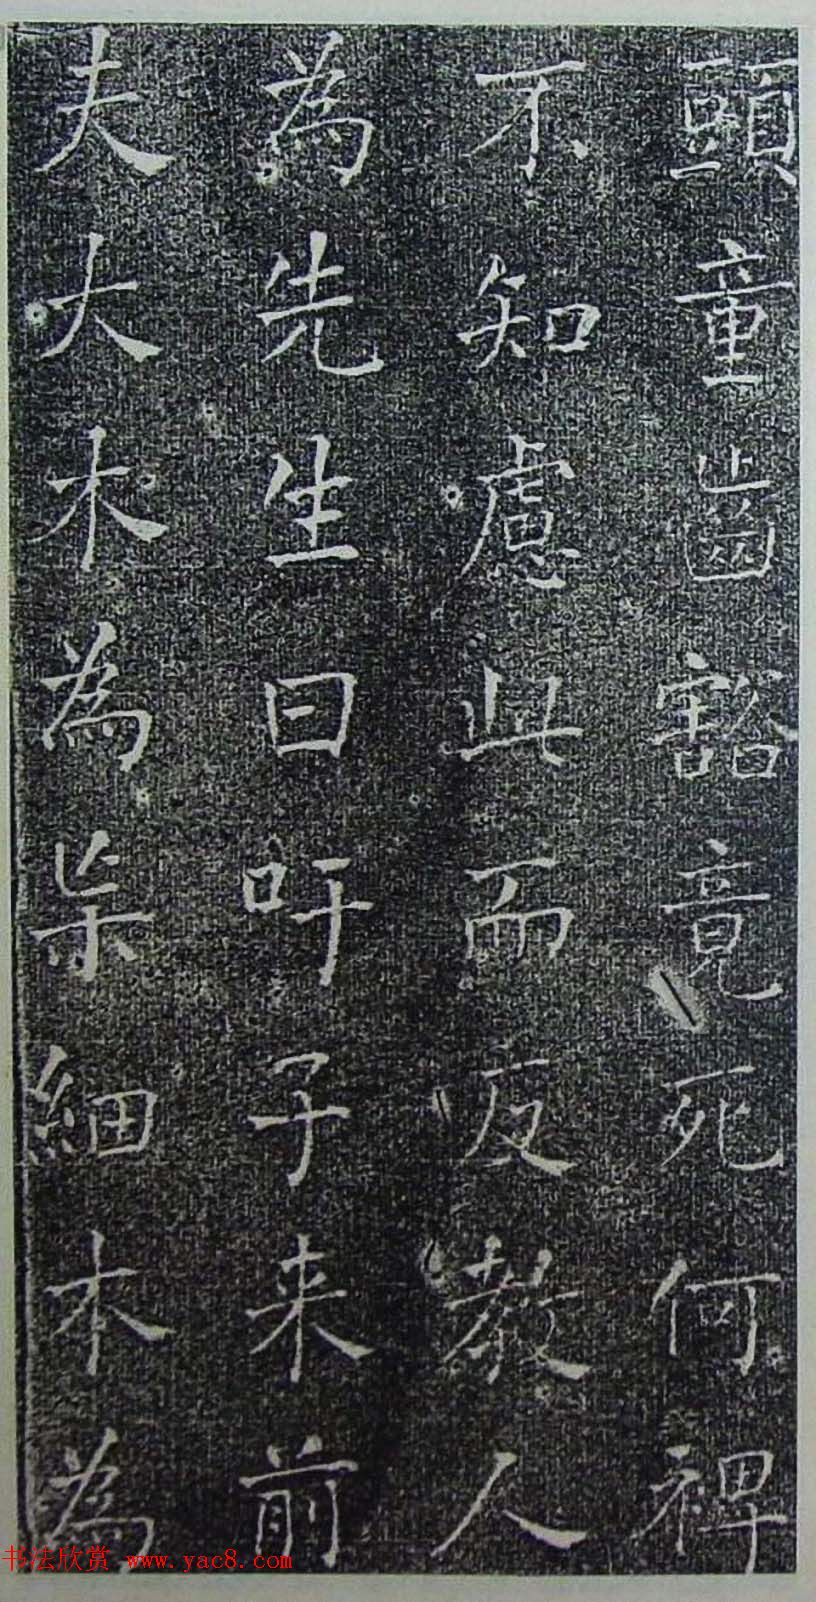 頭童齒豁竟死何裨
不知慮此而反教人
為先生曰吁子来前
夫大木為杗細木為
书法欣赏 www.yac8.com